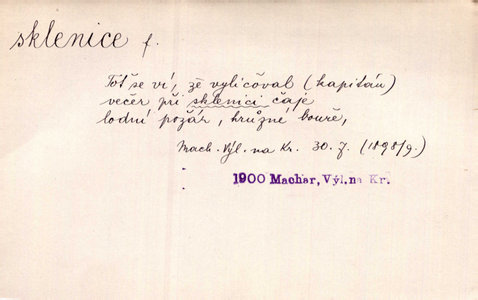 sklenice f.
Toť se ví, že vyličoval (kapitán)
večer při sklenici čaje
lodní požár, hrůzné bouře,
Mach. Výl. na Kr. 30. J. (1898/9.)
1900 Machar, Výl. na Kr.